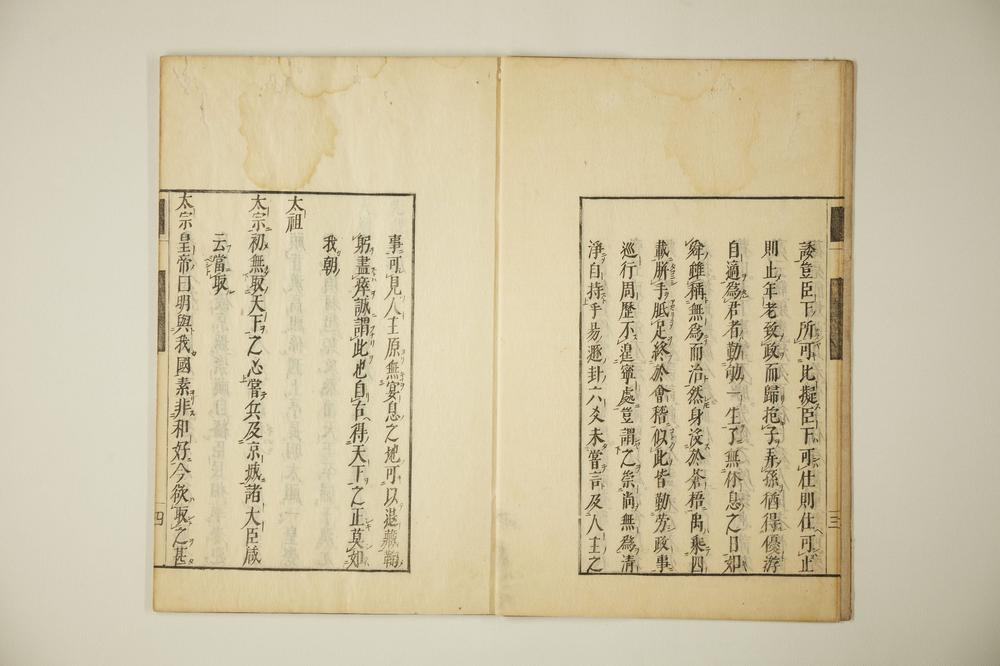 諉豈臣下所可比擬臣下可仕則仕可止
則止年老致政而歸抱子弄孫猶得優游
自適為君者勤劬一生了無休息之日如
舜雖稱無為而治然身歿於蒼梧禹乘四
載胼手胝足終於會稽似此皆勤勞政事
巡行周歷不遑寧處豈謂之崇尚無為清
淨自持乎易遯卦六爻未嘗言及人主之
三
事可見人主原無宴息之地可以退藏鞠
躬盡瘁誠謂此也自古得天下之正莫如
我朝
太祖
太宗初無取天下之心嘗兵及京城諸大臣咸
云當取
太宗皇帝曰明與我國素非和好今欲取之甚
四